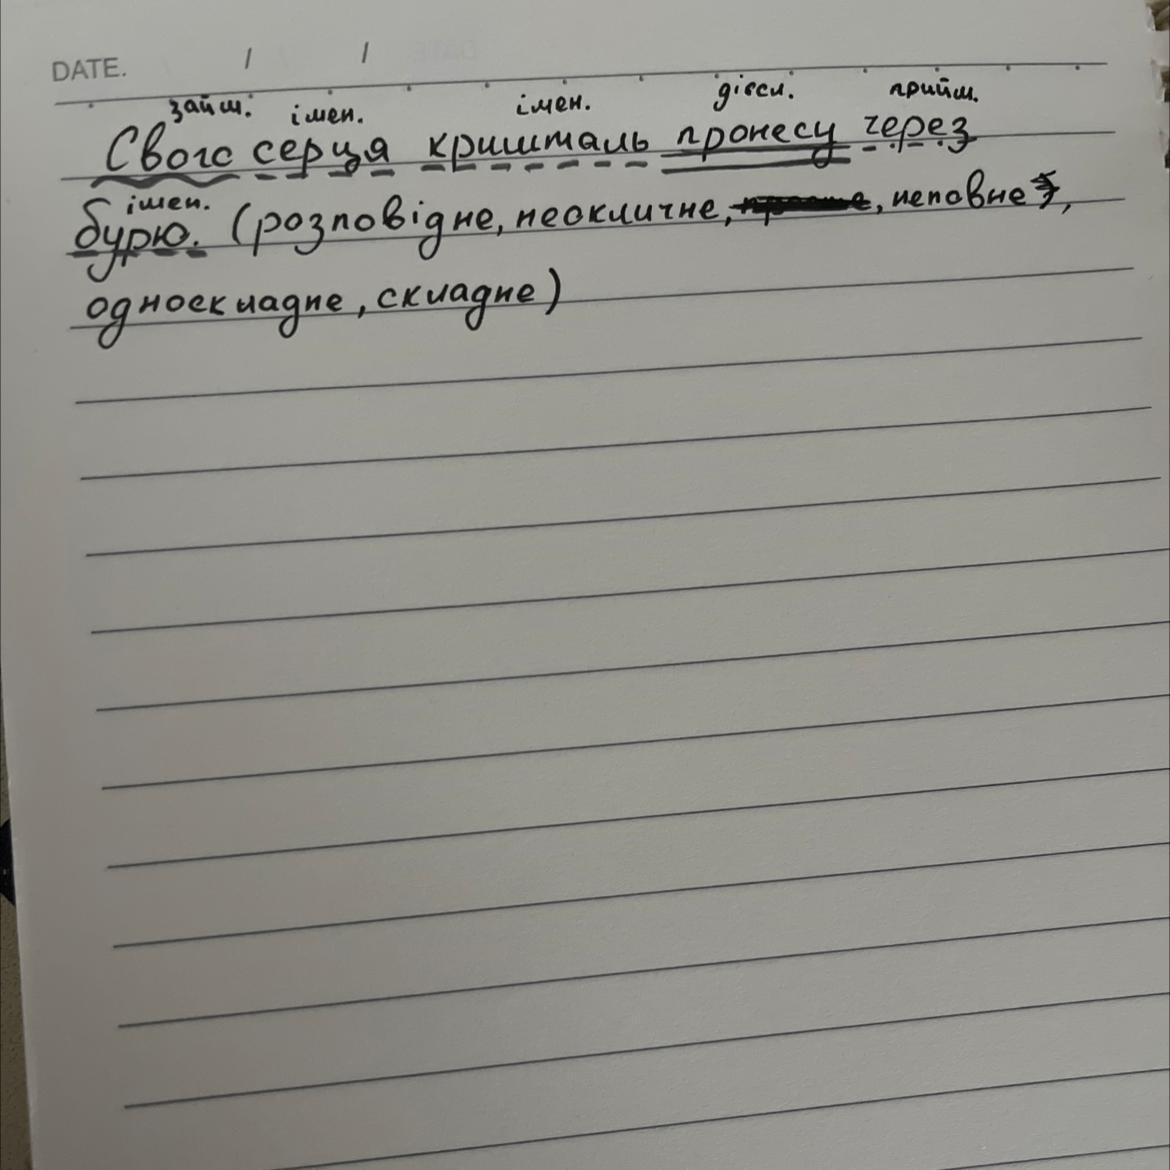 DATE. / /
займ. імен. імен. дієсл. прийм.
Свого серця кришталь пронесу через
імен.
бурю. (розповідне, неокличне, , неповне,
односкладне, складне)